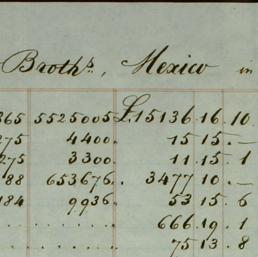 Broths., Mexico in
365 5525005 £15136.16.10
275 4400. 15 15.—
275 3300. 11.15.1
88 653676. 3477 10.—
184 9936. 53 15.6
666.19.1
75 13.8